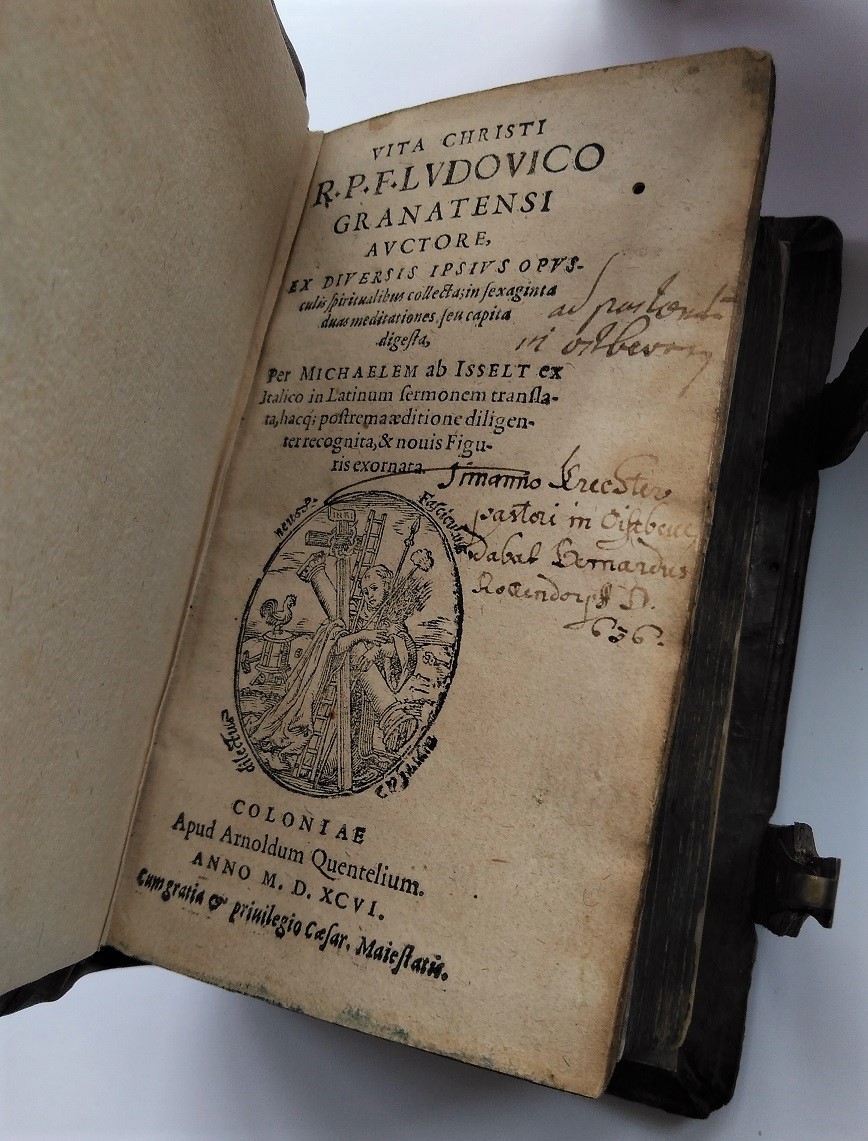 VITA CHRISTI
R. P. F. LVDOVICO
GRANATENSI
AVCTORE,
EX DIVERSIS IPSIVS OPVS-
culis spiritualibus collecta; in sexaginta
duas meditationes, seu capita
digesta,
Per MICHAELEM ab ISSELT ex
Italico in Latinum sermonem transla-
ta, hacq; postrema æditione diligen-
ter recognita, & nouis Figu-
ris exornata.
ad
in
pastori in
dabat Bernardus
636.
Fasciculus
dilectus
INRI
COLONIAE
Apud Arnoldum Quentelium.
ANNO M. D. XCVI.
Cum gratia & priuilegio Cæsar. Maiestatis.